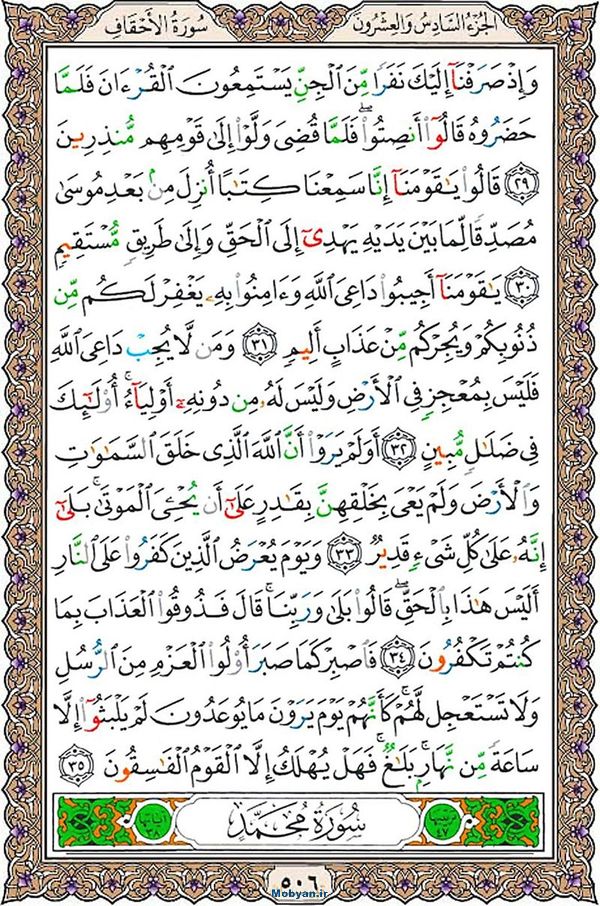 الجزء السادس والعشرون
سورة الأحقاف
وَإِذْ صَرَفْنَآ إِلَيْكَ نَفَرًا مِّنَ ٱلْجِنِّ يَسْتَمِعُونَ ٱلْقُرْءَانَ فَلَمَّا
حَضَرُوهُ قَالُوٓا۟ أَنصِتُوا۟ ۖ فَلَمَّا قُضِىَ وَلَّوْا۟ إِلَىٰ قَوْمِهِم مُّنذِرِينَ
٢٩ قَالُوا۟ يَـٰقَوْمَنَآ إِنَّا سَمِعْنَا كِتَـٰبًا أُنزِلَ مِنۢ بَعْدِ مُوسَىٰ
مُصَدِّقًا لِّمَا بَيْنَ يَدَيْهِ يَهْدِىٓ إِلَى ٱلْحَقِّ وَإِلَىٰ طَرِيقٍ مُّسْتَقِيمٍ
٣٠ يَـٰقَوْمَنَآ أَجِيبُوا۟ دَاعِىَ ٱللَّهِ وَءَامِنُوا۟ بِهِۦ يَغْفِرْ لَكُم مِّن
ذُنُوبِكُمْ وَيُجِرْكُم مِّنْ عَذَابٍ أَلِيمٍ ٣١ وَمَن لَّا يُجِبْ دَاعِىَ ٱللَّهِ
فَلَيْسَ بِمُعْجِزٍ فِى ٱلْأَرْضِ وَلَيْسَ لَهُۥ مِن دُونِهِۦٓ أَوْلِيَآءُ ۚ أُو۟لَـٰٓئِكَ
فِى ضَلَـٰلٍ مُّبِينٍ ٣٢ أَوَلَمْ يَرَوْا۟ أَنَّ ٱللَّهَ ٱلَّذِى خَلَقَ ٱلسَّمَـٰوَٰتِ
وَٱلْأَرْضَ وَلَمْ يَعْىَ بِخَلْقِهِنَّ بِقَـٰدِرٍ عَلَىٰٓ أَن يُحْـِۧىَ ٱلْمَوْتَىٰ ۚ بَلَىٰٓ
إِنَّهُۥ عَلَىٰ كُلِّ شَىْءٍ قَدِيرٌ ٣٣ وَيَوْمَ يُعْرَضُ ٱلَّذِينَ كَفَرُوا۟ عَلَى ٱلنَّارِ
أَلَيْسَ هَـٰذَا بِٱلْحَقِّ ۖ قَالُوا۟ بَلَىٰ وَرَبِّنَا ۚ قَالَ فَذُوقُوا۟ ٱلْعَذَابَ بِمَا
كُنتُمْ تَكْفُرُونَ ٣٤ فَٱصْبِرْ كَمَا صَبَرَ أُو۟لُوا۟ ٱلْعَزْمِ مِنَ ٱلرُّسُلِ
وَلَا تَسْتَعْجِل لَّهُمْ ۚ كَأَنَّهُمْ يَوْمَ يَرَوْنَ مَا يُوعَدُونَ لَمْ يَلْبَثُوٓا۟ إِلَّا
سَاعَةً مِّن نَّهَارٍۭ ۚ بَلَـٰغٌ ۚ فَهَلْ يُهْلَكُ إِلَّا ٱلْقَوْمُ ٱلْفَـٰسِقُونَ ٣٥
ترتيبها ٤٧
سُورَةُ مُحَمَّدٍ
آياتها ٣٨
٥٠٦
Mobyan.ir